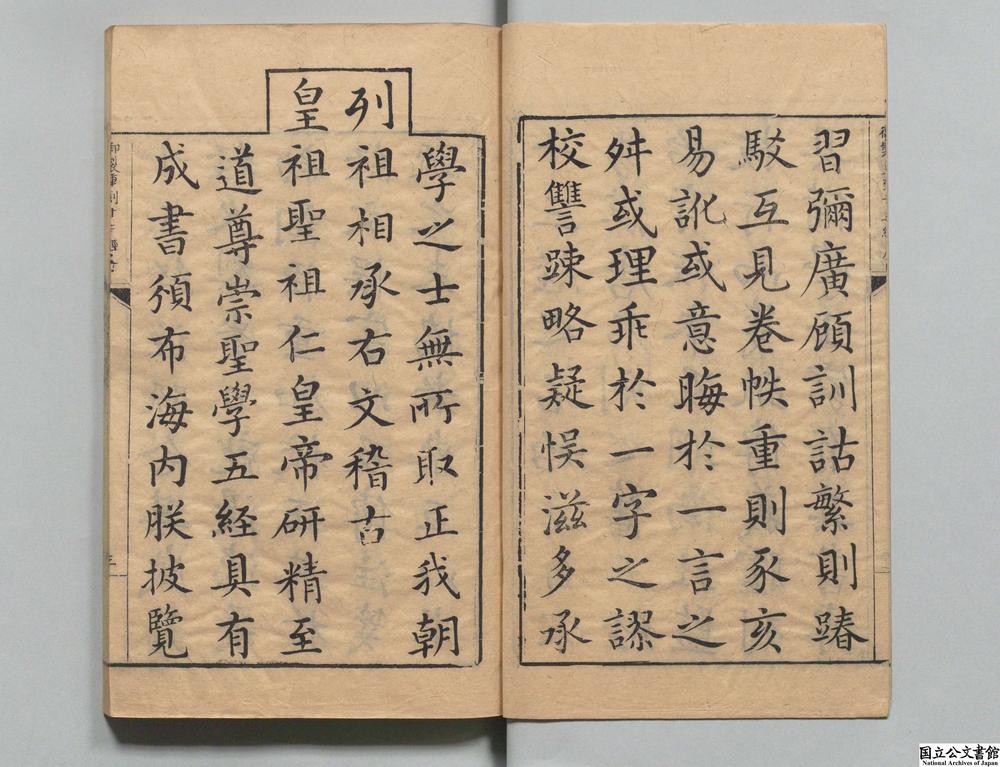 習彌廣顧訓詁繁則踳
駁互見卷帙重則豕亥
易訛或意晦於一言之
舛或理乖於一字之謬
校讐踈略疑悮滋多承
學之士無所取正我朝
列祖相承右文稽古
皇祖聖祖仁皇帝研精至
道尊崇聖學五経具有
成書頒布海内朕披覽
国立公文書館
National Archives of Japan